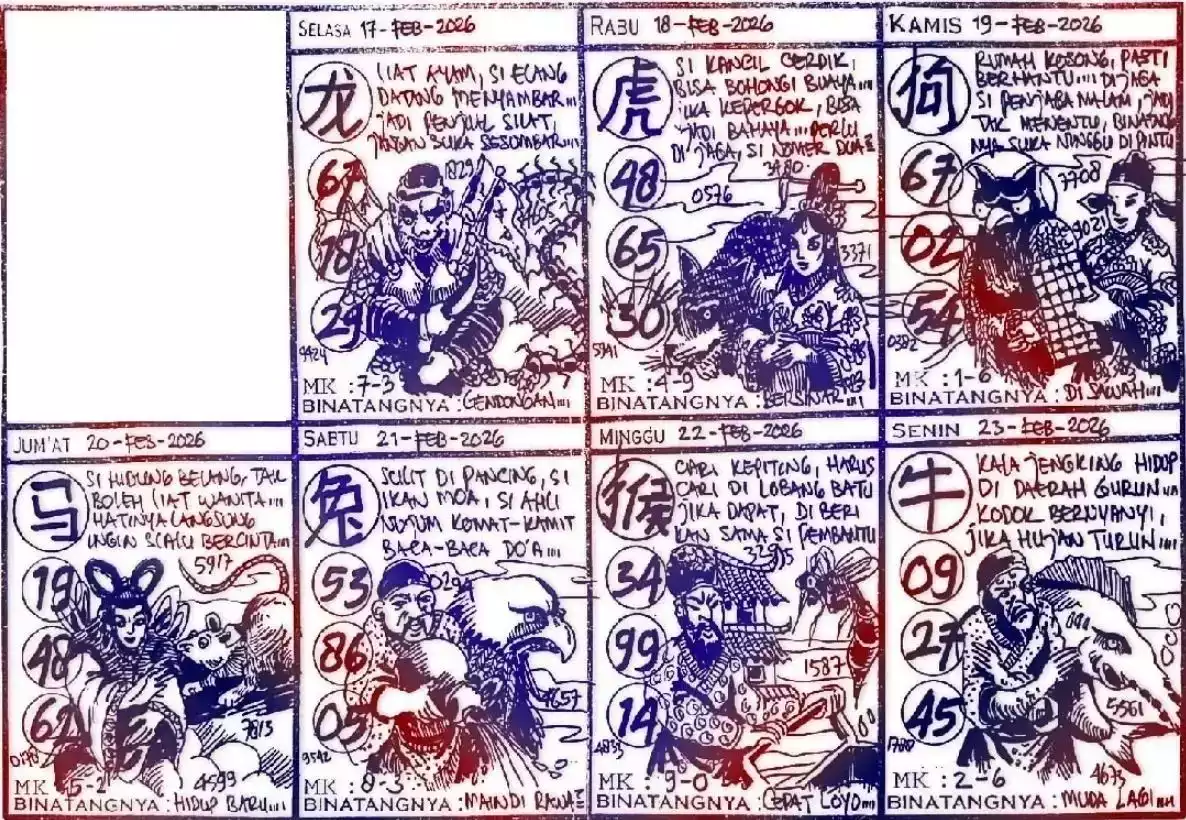 SELASA 17-FEB-2026
龙
LIAT AYAM, SI ELANG
DATANG MENYAMBAR....
JADI PENJUAL SILAT,
JANGAN SUKA SESUMBAR....
67
1829
18
29
9424
MK : 7-3
BINATANGNYA : GENDONGAN....
RABU 18-FEB-2026
虎
SI KANCIL CERDIK,
BISA BOHONGI BUAYA....
JIKA KEPERGOK, BISA
JADI BAHAYA.... PERLU
DI JAGA, SI NOMER DUA
48
3480
0576
65
3371
30
5741
MK : 4-9
BINATANGNYA : BERSINAR....
KAMIS 19-FEB-2026
狗
RUMAH KOSONG, PASTI
BERHANTU.... DI JAGA
SI PENJAGA MALAM, JADI
TAK MENENTU, BINATANG
NYA SUKA NUNGGU DI PINTU
67
7708
02
9021
54
0382
MK : 1-6
BINATANGNYA : DI SAWAH....
JUM'AT 20-FEB-2026
马
SI HIDUNG BELANG, TAK
BOLEH LIAT WANITA....
HATINYA LANGSUNG
INGIN SLALU BERCINTA....
5917
19
48
62
7813
0170
4599
MK : 5-2
BINATANGNYA : HIDUP BARU....
SABTU 21-FEB-2026
兔
SULIT DI PANCING, SI
IKAN MOA, SI AHLI
NUJUM KOMAT-KAMIT
BACA-BACA DO'A....
53
86
4657
05
9542
MK : 8-3
BINATANGNYA : MAIN DI RAWA
MINGGU 22-FEB-2026
猴
CARI KEPITING, HARUS
CARI DI LOBANG BATU
JIKA DAPAT, DI BERI
KAN SAMA SI PEMBANTU
34
99
1587
14
4833
MK : 9-0
BINATANGNYA : CEPAT LOYO....
SENIN 23-FEB-2026
牛
KALA JENGKING HIDUP
DI DAERAH GURUN....
KODOK BERNYANYI,
JIKA HUJAN TURUN....
09
27
45
5561
1788
4673
MK : 2-6
BINATANGNYA : MUDA LAGI....